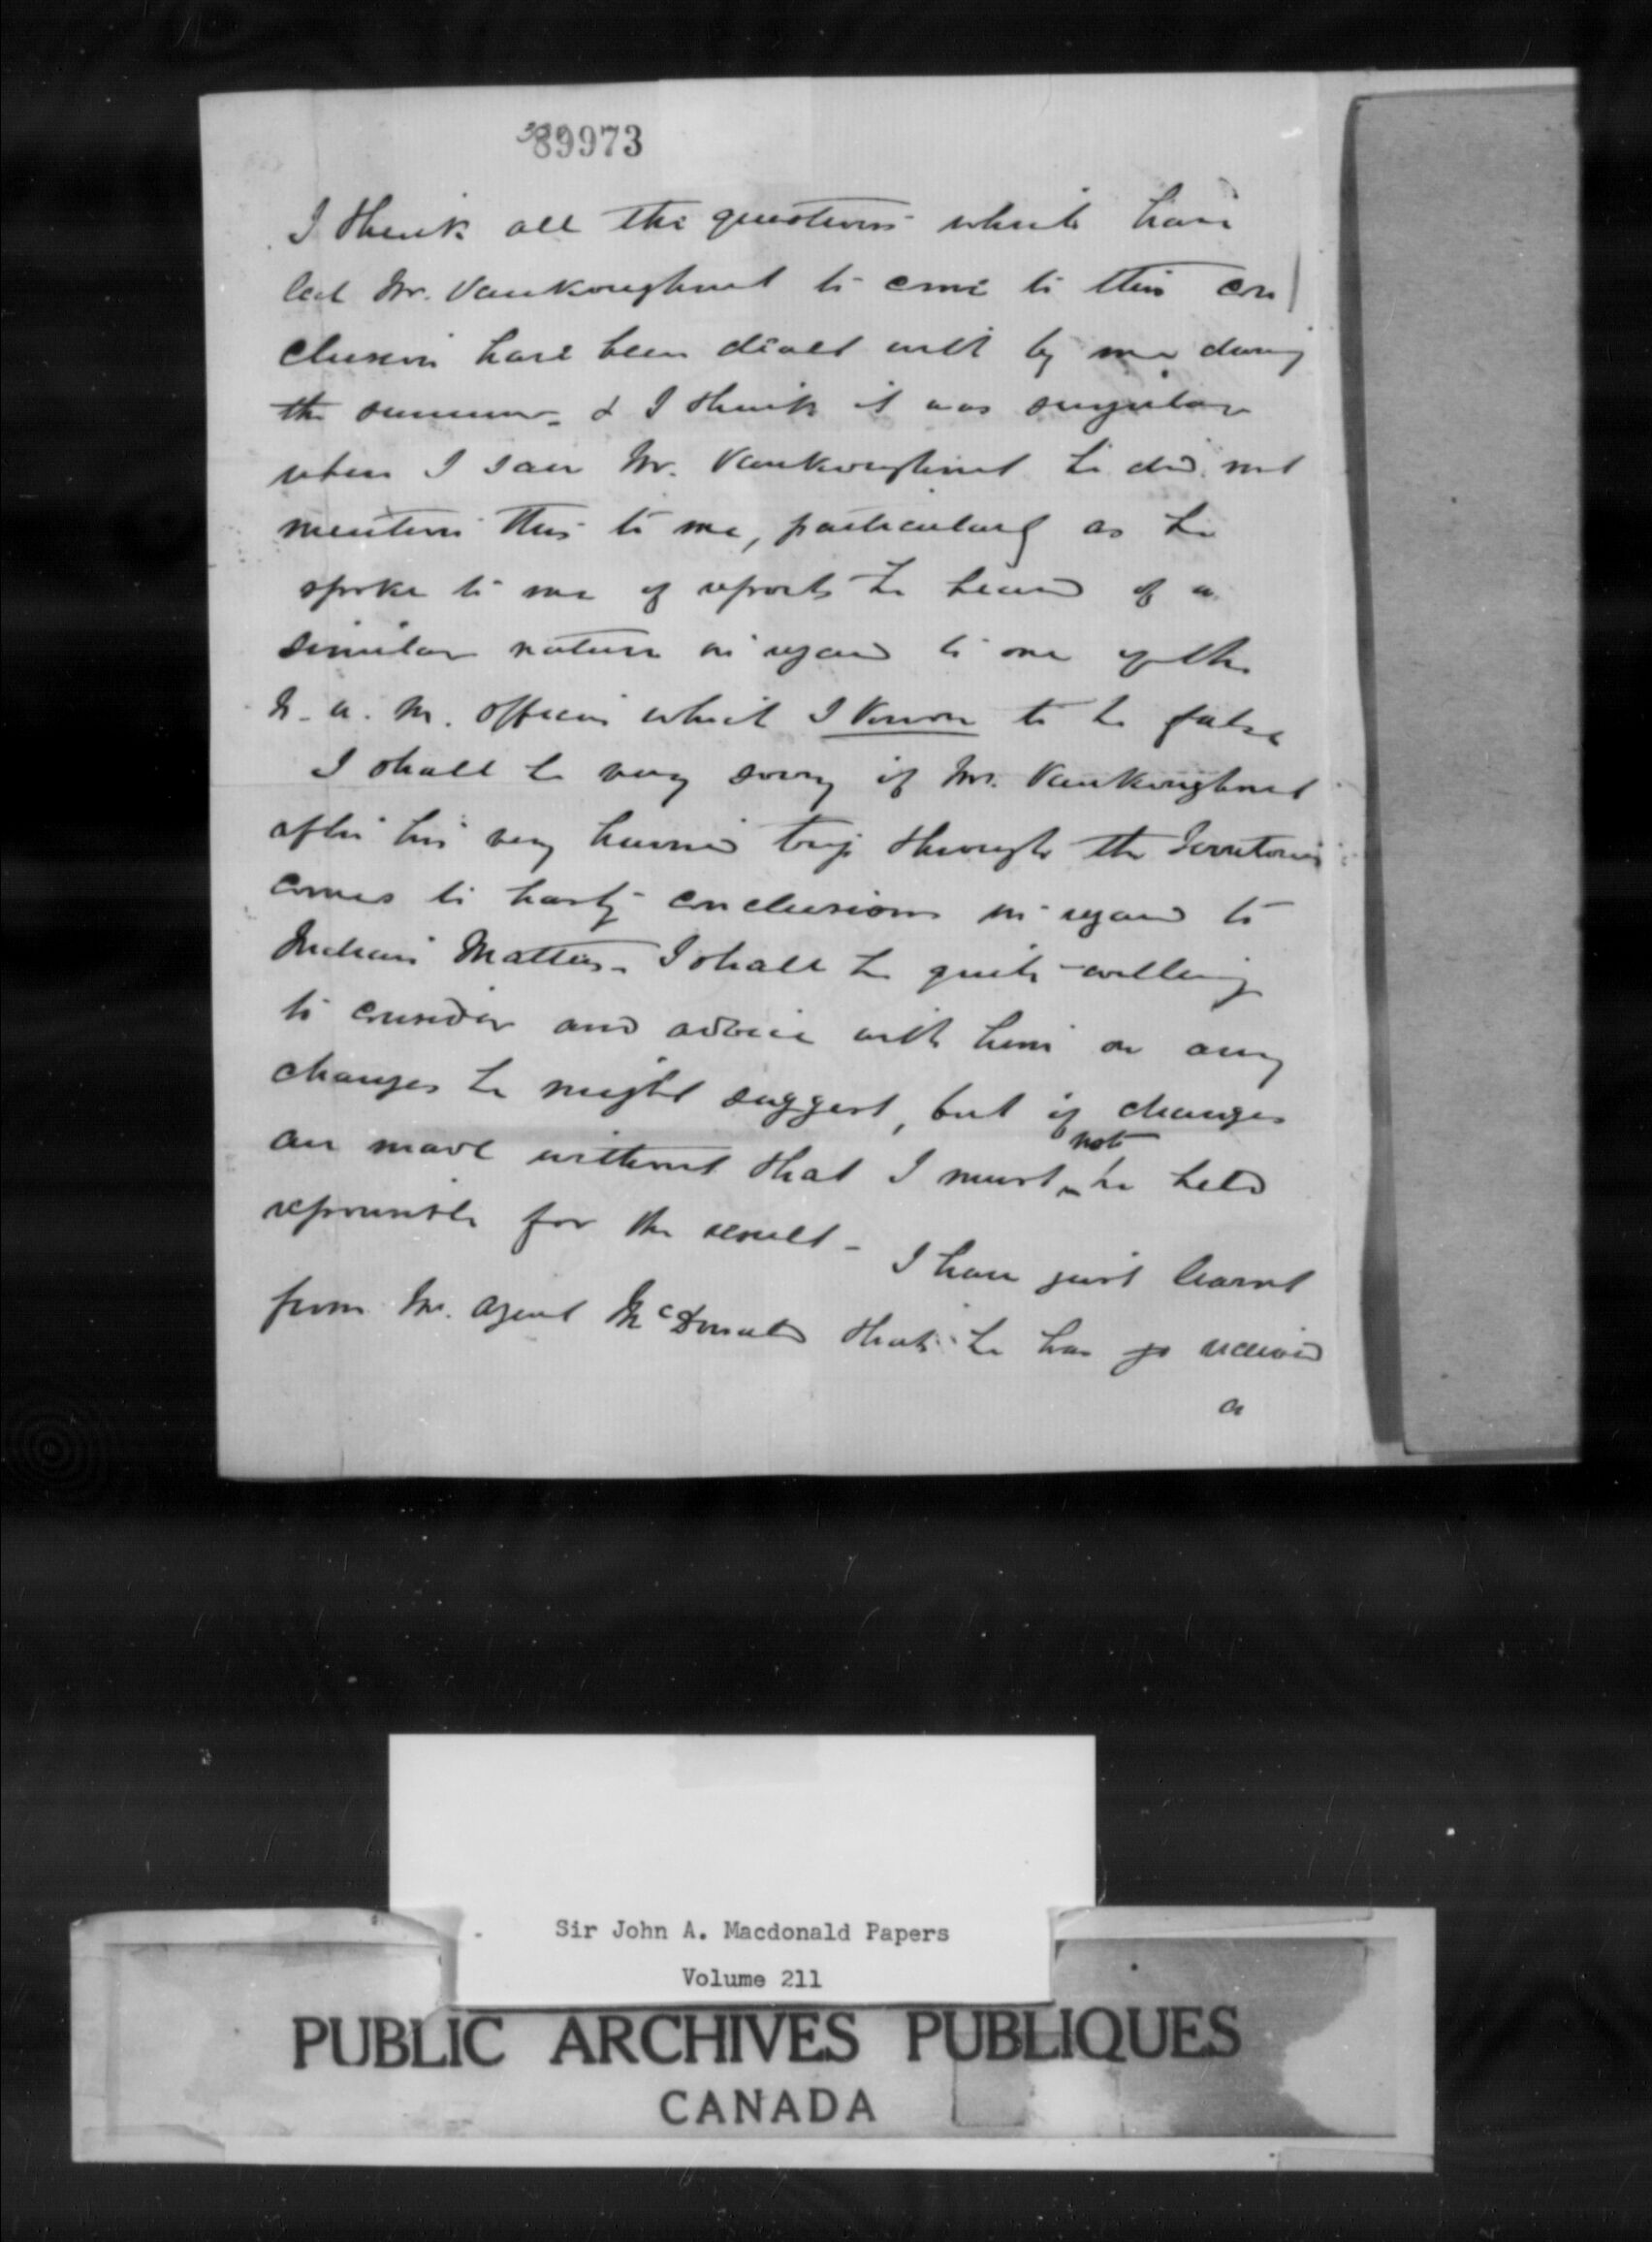 89973
I think all the questions which have
led Mr. Vankoughnet to come to this con
clusion have been dealt with by me during
the summer - & I think it was singular
when I saw Mr. Vankoughnet he did not
mention this to me, particularly as he
spoke to me of reports he heard of a
similar nature in regard to one of the
N. W. M. officers which I know to be false
I shall be very sorry if Mr. Vankoughnet
after his very hurried trip through the Territories
comes to hasty conclusions in regard to
Indian Matters - I shall be quite willing
to consider and advise with him on any
changes he might suggest, but if changes
are made without that I must not be held
responsible for the result - I have just learnt
from Mr. Agent McDonald that he has received
a
Sir John A. Macdonald Papers
Volume 211
PUBLIC ARCHIVES PUBLIQUES
CANADA